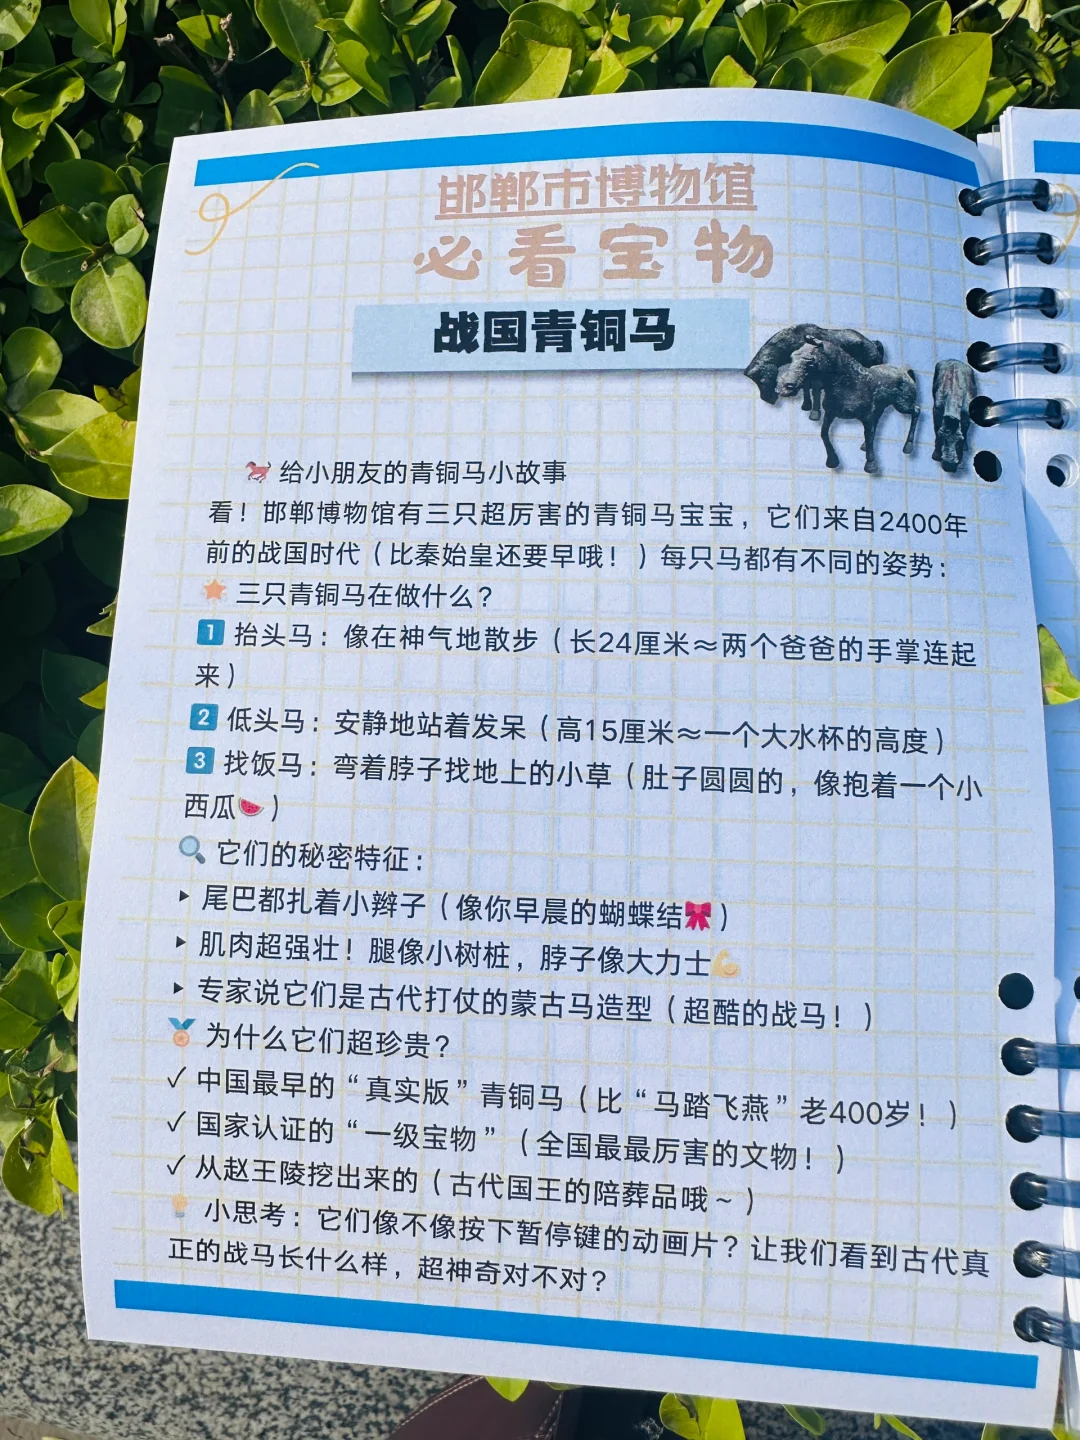 邯郸市博物馆
必看宝物
战国青铜马
🐎 给小朋友的青铜马小故事
看！邯郸博物馆有三只超厉害的青铜马宝宝，它们来自2400年
前的战国时代（比秦始皇还要早哦！）每只马都有不同的姿势：
🌟 三只青铜马在做什么？
1️⃣ 抬头马：像在神气地散步（长24厘米≈两个爸爸的手掌连起
来）
2️⃣ 低头马：安静地站着发呆（高15厘米≈一个大水杯的高度）
3️⃣ 找饭马：弯着脖子找地上的小草（肚子圆圆的，像抱着一个小
西瓜🍉）
🔍 它们的秘密特征：
▸ 尾巴都扎着小辫子（像你早晨的蝴蝶结🎀）
▸ 肌肉超强壮！腿像小树桩，脖子像大力士💪
▸ 专家说它们是古代打仗的蒙古马造型（超酷的战马！）
🏅 为什么它们超珍贵？
✓ 中国最早的“真实版”青铜马（比“马踏飞燕”老400岁！）
✓ 国家认证的“一级宝物”（全国最最厉害的文物！）
✓ 从赵王陵挖出来的（古代国王的陪葬品哦～）
💡 小思考：它们像不像按下暂停键的动画片？让我们看到古代真
正的战马长什么样，超神奇对不对？